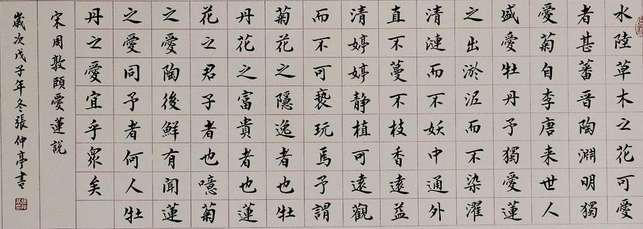 水陸草木之花可愛
者甚蕃晉陶淵明獨
愛菊自李唐来世人
盛愛牡丹予獨愛蓮
之出淤泥而不染濯
清漣而不妖中通外
直不蔓不枝香遠益
清婷婷静植可遠觀
而不可褻玩焉予謂
菊花之隱逸者也牡
丹花之富貴者也蓮
花之君子者也噫菊
之愛陶後鮮有聞蓮
之愛同予者何人牡
丹之愛宜乎眾矣
宋周敦頤愛蓮説
歲次戊子年冬張仲亭書